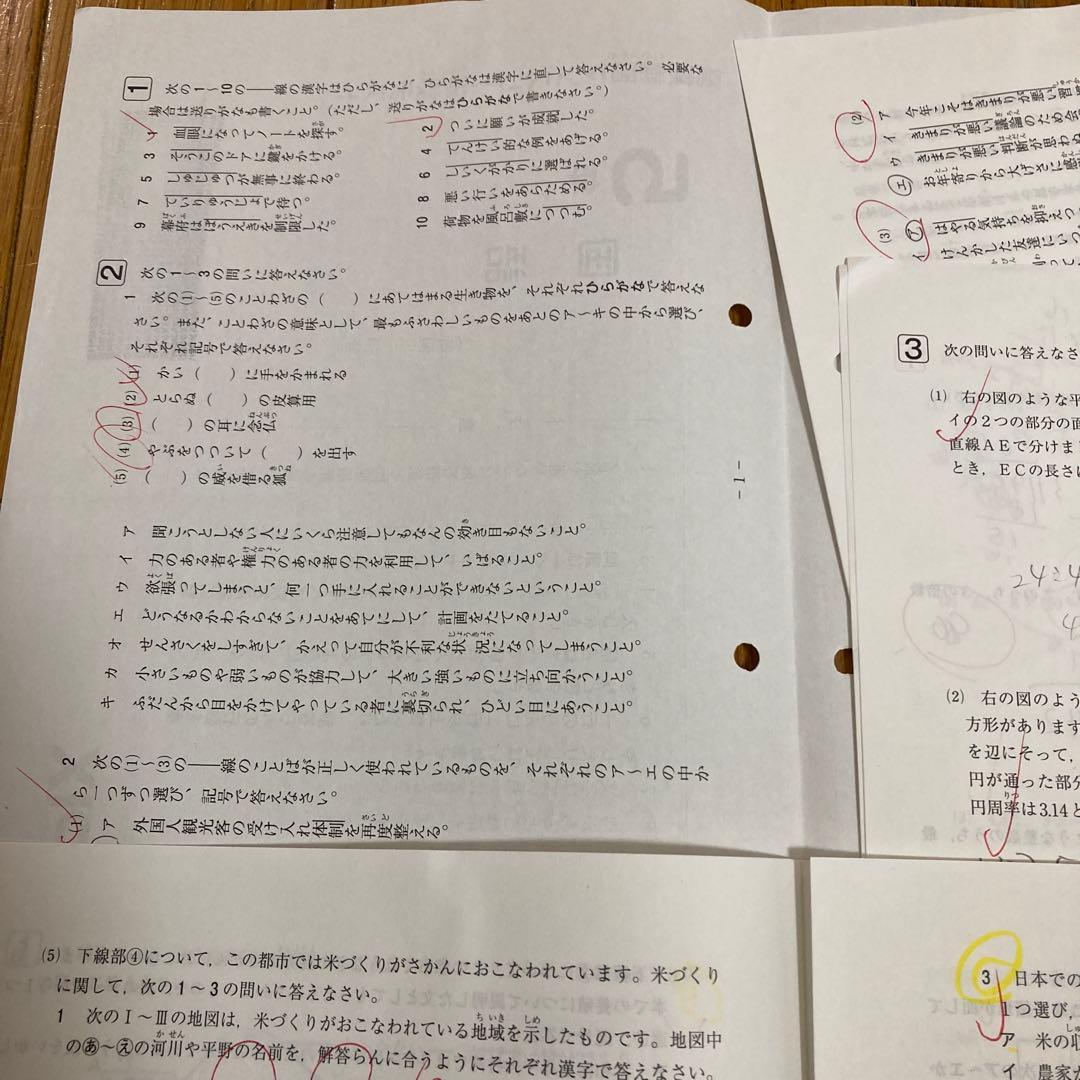 1 次の1〜10の――線の漢字はひらがなに、ひらがなは漢字に直して答えなさい。必要な
場合は送りがなも書くこと。(ただし、送りがなはひらがなで書きなさい。)
1 血眼になってノートを探す。
2 ついに願いが成就した。
3 そうこのドアに鍵をかける。
4 てんけい的な例をあげる。
5 しゅじゅつが無事に終わる。
6 しいくがかりに選ばれる。
7 ていりゅうじょで待つ。
8 悪い行いをあらためる。
9 幕府はぼうえきを制限した。
10 荷物を風呂敷につつむ。
2 次の1〜3の問いに答えなさい。
1 次の(1)〜(5)のことわざの( )にあてはまる生き物を、それぞれひらがなで答えな
さい。また、ことわざの意味として、最もふさわしいものをあとのア〜キの中から選び、
それぞれ記号で答えなさい。
(1) かい( )に手をかまれる
(2) とらぬ( )の皮算用
(3) ( )の耳に念仏
(4) やぶをつついて( )を出す
(5) ( )の威を借る狐
ア 聞こうとしない人にいくら注意してもなんの効き目もないこと。
イ 力のある者や権力のある者の力を利用して、いばること。
ウ 欲張ってしまうと、何一つ手に入れることができないということ。
エ どうなるかわからないことをあてにして、計画をたてること。
オ せんさくをしすぎて、かえって自分が不利な状況になってしまうこと。
カ 小さいものや弱いものが協力して、大きい強いものに立ち向かうこと。
キ ふだんから目をかけてやっている者に裏切られ、ひどい目にあうこと。
2 次の(1)〜(3)の――線のことばが正しく使われているものを、それぞれのア〜エの中か
ら一つずつ選び、記号で答えなさい。
(1) ア 外国人観光客の受け入れ体制を再度整える。
- 1 -
(2) ア 今年こそはきまりが悪い習
イ きまりが悪い議論のため会
ウ きまりが悪い判断が思わぬ
エ お年寄りから大げさに感
(3) ア はやる気持ちを抑えつ
イ けんかした友達にいつ
3 次の問いに答えなさ
(1) 右の図のような平
イの2つの部分の面
直線AEで分けま
とき,ECの長さは
(2) 右の図のよう
方形があります
を辺にそって,
円が通った部分
円周率は3.14と
(5) 下線部④について,この都市では米づくりがさかんにおこなわれています。米づくり
に関して,次の1〜3の問いに答えなさい。
1 次のⅠ〜Ⅲの地図は,米づくりがおこなわれている地域を示したものです。地図中
のあ〜えの河川や平野の名前を,解答らんに合うようにそれぞれ漢字で答えなさい。
3 日本での
1つ選び,
ア 米の収
イ 農家が